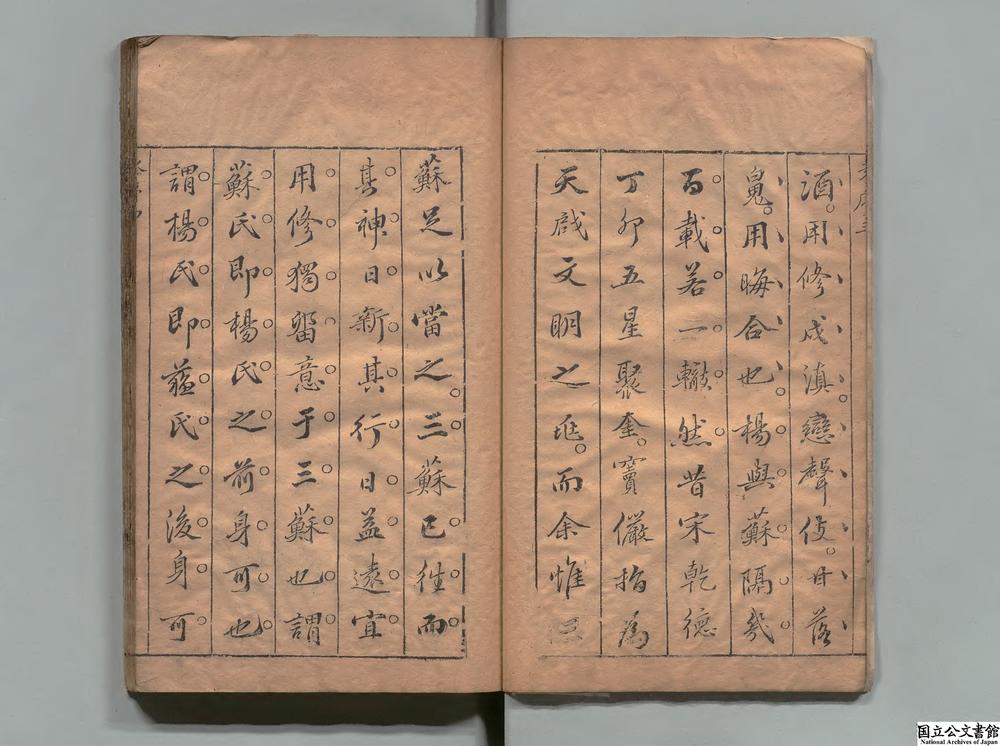 酒用修戍滇戀聲伎甘落
用晦合也楊與蘇隔幾
百載若一轍然昔宋乾德
丁卯五星聚奎竇儼指為
天啟文明之兆而余惟三
蘇足以當之三蘇已往而
其神日新其行日益遠宜
用修獨畱意于三蘇也謂
蘇氏即楊氏之前身可也
謂楊氏即蘇氏之後身可
国立公文書館
National Archives of Japan